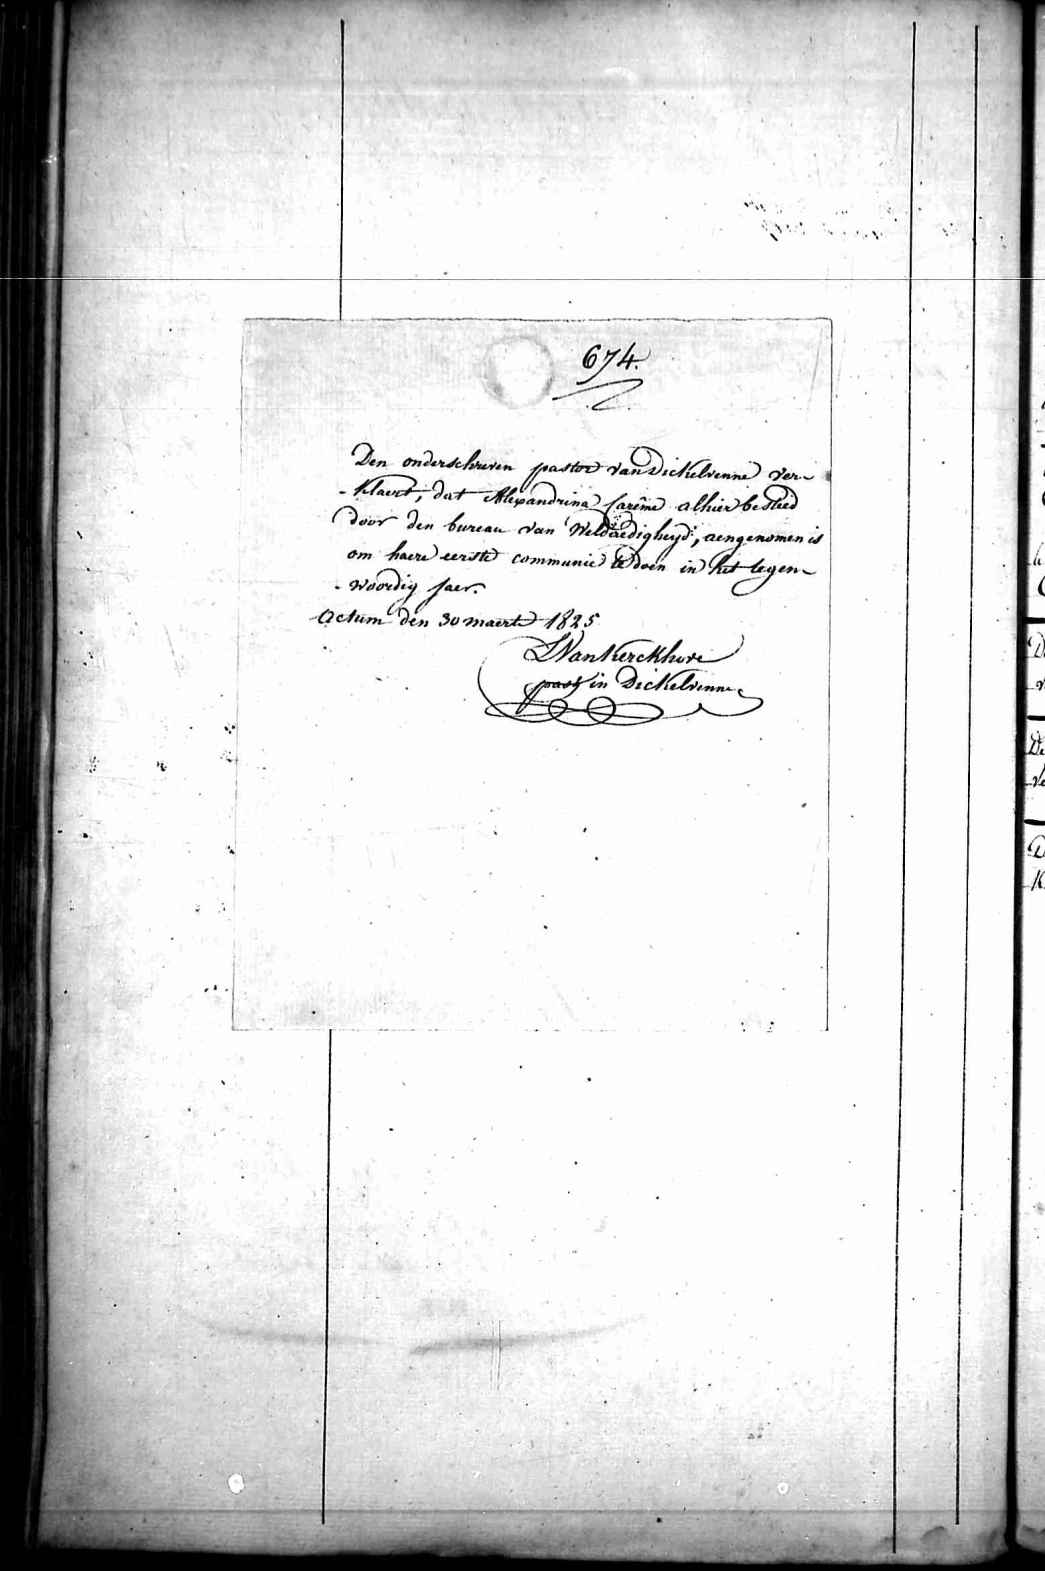 674.
Den onderschreven pastor van Dickelvenne ver-
-klaert, dat Alexandrina Carême alhier besteed
door den bureau van Weldaedigheyd, aengenomen is
om haere eerste communie te doen in het tegen-
-woordig jaer.
Actum den 30 maerte 1825
Vankerckhove
past in Dickelvenne